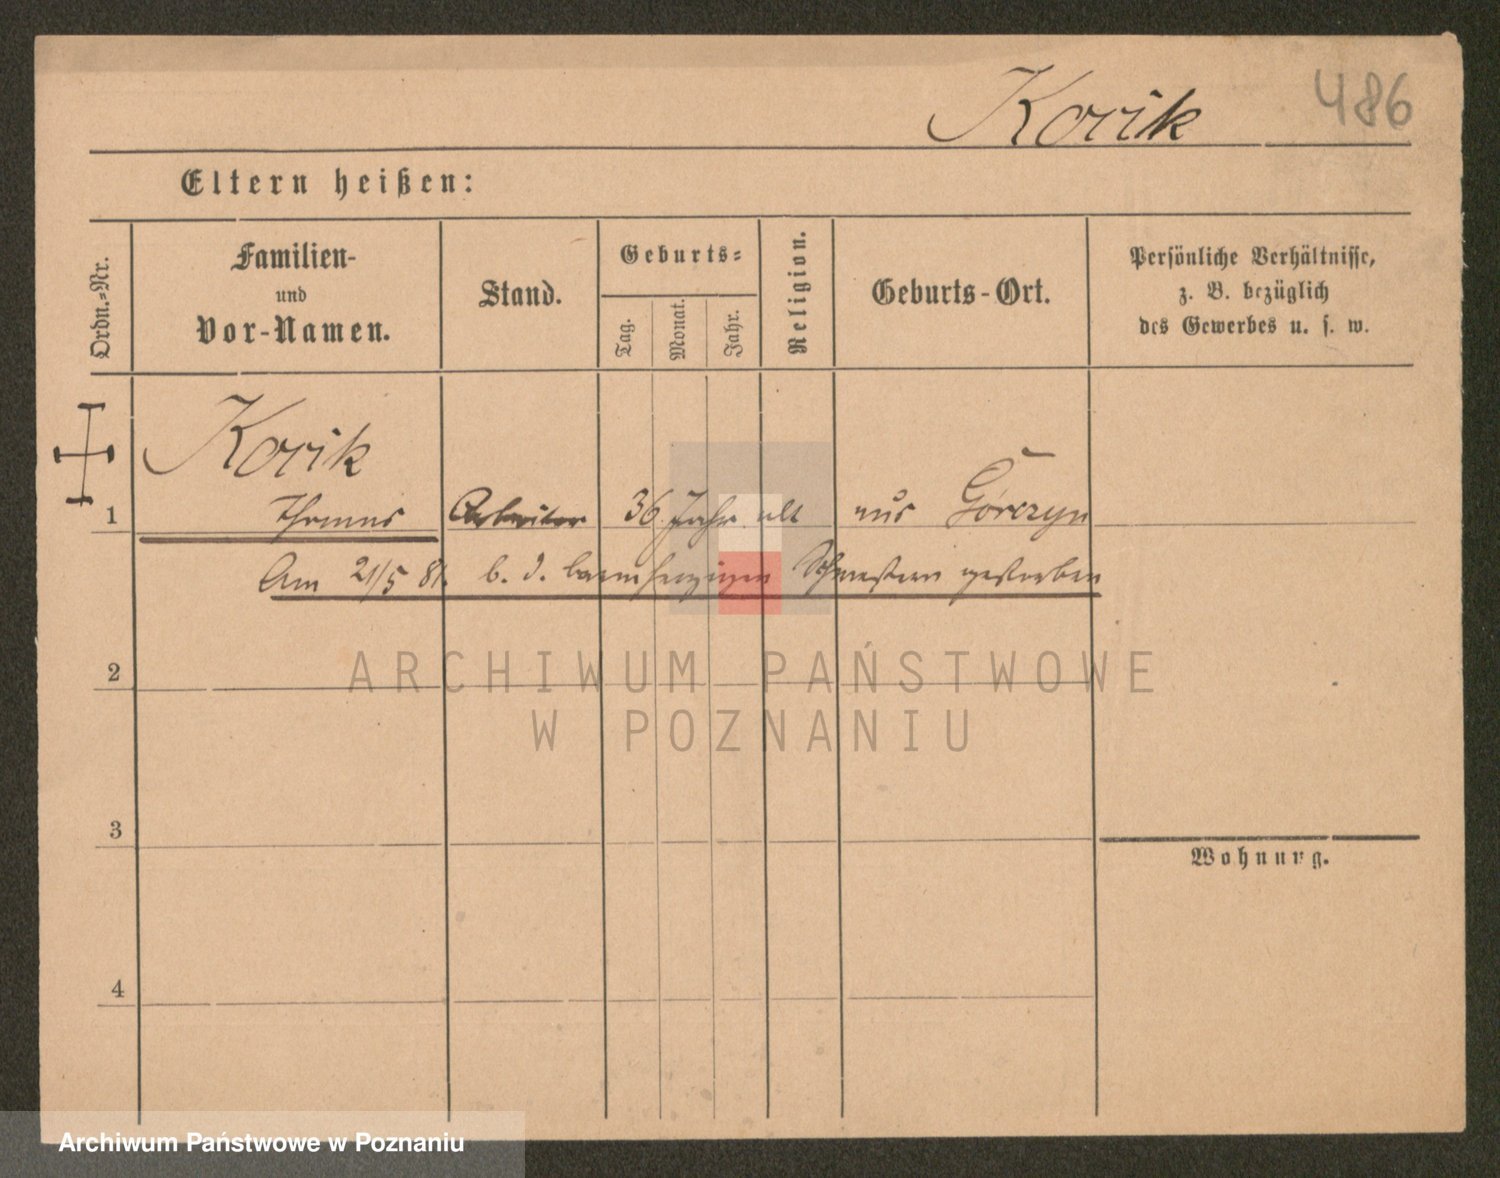 Korik 486
Eltern heißen:
Ordn.=Nr.
Familien-
und
Vor-Namen.
Stand.
Geburts=
Tag.
Monat.
Jahr.
Religion.
Geburts-Ort.
Persönliche Verhältnisse,
z. B. bezüglich
des Gewerbes u. s. w.
Korik
1 Thomas Arbeiter 36 Jahr alt aus Górczyn
Am 21/5 81. b. d. barmherzigen Schwestern gestorben
2
ARCHIWUM PAŃSTWOWE
W POZNANIU
3
Wohnung.
4
Archiwum Państwowe w Poznaniu